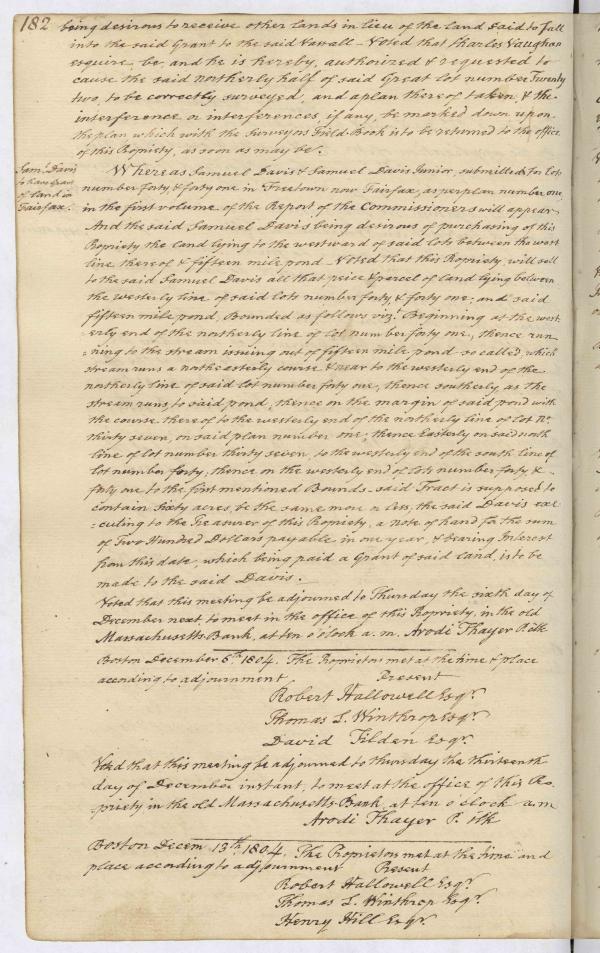 182
being desirous to receive other lands in lieu of the land said to fall
into the said Grant to the said Vassall - Voted that Charles Vaughan
esquire, be, and he is hereby, authorized & requested to
cause the said northerly half of said Great lot number Twenty
two, to be correctly surveyed, and a plan thereof taken, & the
interference or interferences, if any, be marked down upon
the plan which with the Surveyors Field-Book is to be returned to the office
of this Propriety, as soon as may be.
Saml. Davis
to have Grant
of land in
Fairfax.
Whereas Samuel Davis & Samuel Davis Junior, submitted for lots
number forty & forty one in Freetown now Fairfax, as per plan number one,
in the first volume of the Report of the Commissioners will appear-
And the said Samuel Davis being desirous of purchasing of this
Propriety the land lying to the westward of said lots between the west
line thereof & fifteen mile pond - Voted that this Propriety will sell
to the said Samuel Davis all that peice & parcel of land lying between
the westerly line of said lots number forty & forty one, and said
fifteen mile pond, Bounded as follows viz. Beginning at the west-
erly end of the northerly line of lot number forty one, thence run-
=ning to the stream issuing out of fifteen mile pond so called, which
stream runs a northeasterly course & near to the westerly end of the
northerly line of said lot number forty one, thence southerly as the
stream runs to said pond, thence on the margin of said pond with
the course thereof to the westerly end of the northerly line of lot No.
thirty seven, on said plan number one, thence Easterly on said north
line of lot number thirty seven, to the westerly end of the south line of
lot number forty, thence on the westerly end of lots number forty, &
forty one to the first mentioned Bounds - said Tract is supposed to
contain sixty acres, be the same more or less, the said Davis exe-
=cuting to the Treasurer of this Propriety, a note of hand for the sum
of Two Hundred Dollars payable in one year, & bearing Interest
from this date, which being paid a Grant of said land, is to be
made to the said Davis.
Voted that this meeting be adjourned to Thursday the sixth day of
December next, to meet in the office of this Propriety, in the old
Massachusetts Bank, at ten o'clock a.m. Arodi Thayer P. clk
Boston December 6th. 1804. The Proprietors met at the time & place
according to adjournment
Present
Robert Hallowell Esqr.
Thomas L. Winthrop Esqr.
David Tilden Esqr.
Voted that this meeting be adjourned to thursday the thirteenth
day of December instant, to meet at the office of this Pro-
priety in the old Massachusetts-Bank, at ten o'clock a.m
Arodi Thayer P. clk
Boston Decem 13th. 1804. The Proprietors met at the time and
place according to adjournment
Present
Robert Hallowell Esqr.
Thomas L. Winthrop Esqr.
Henry Hill Esqr.